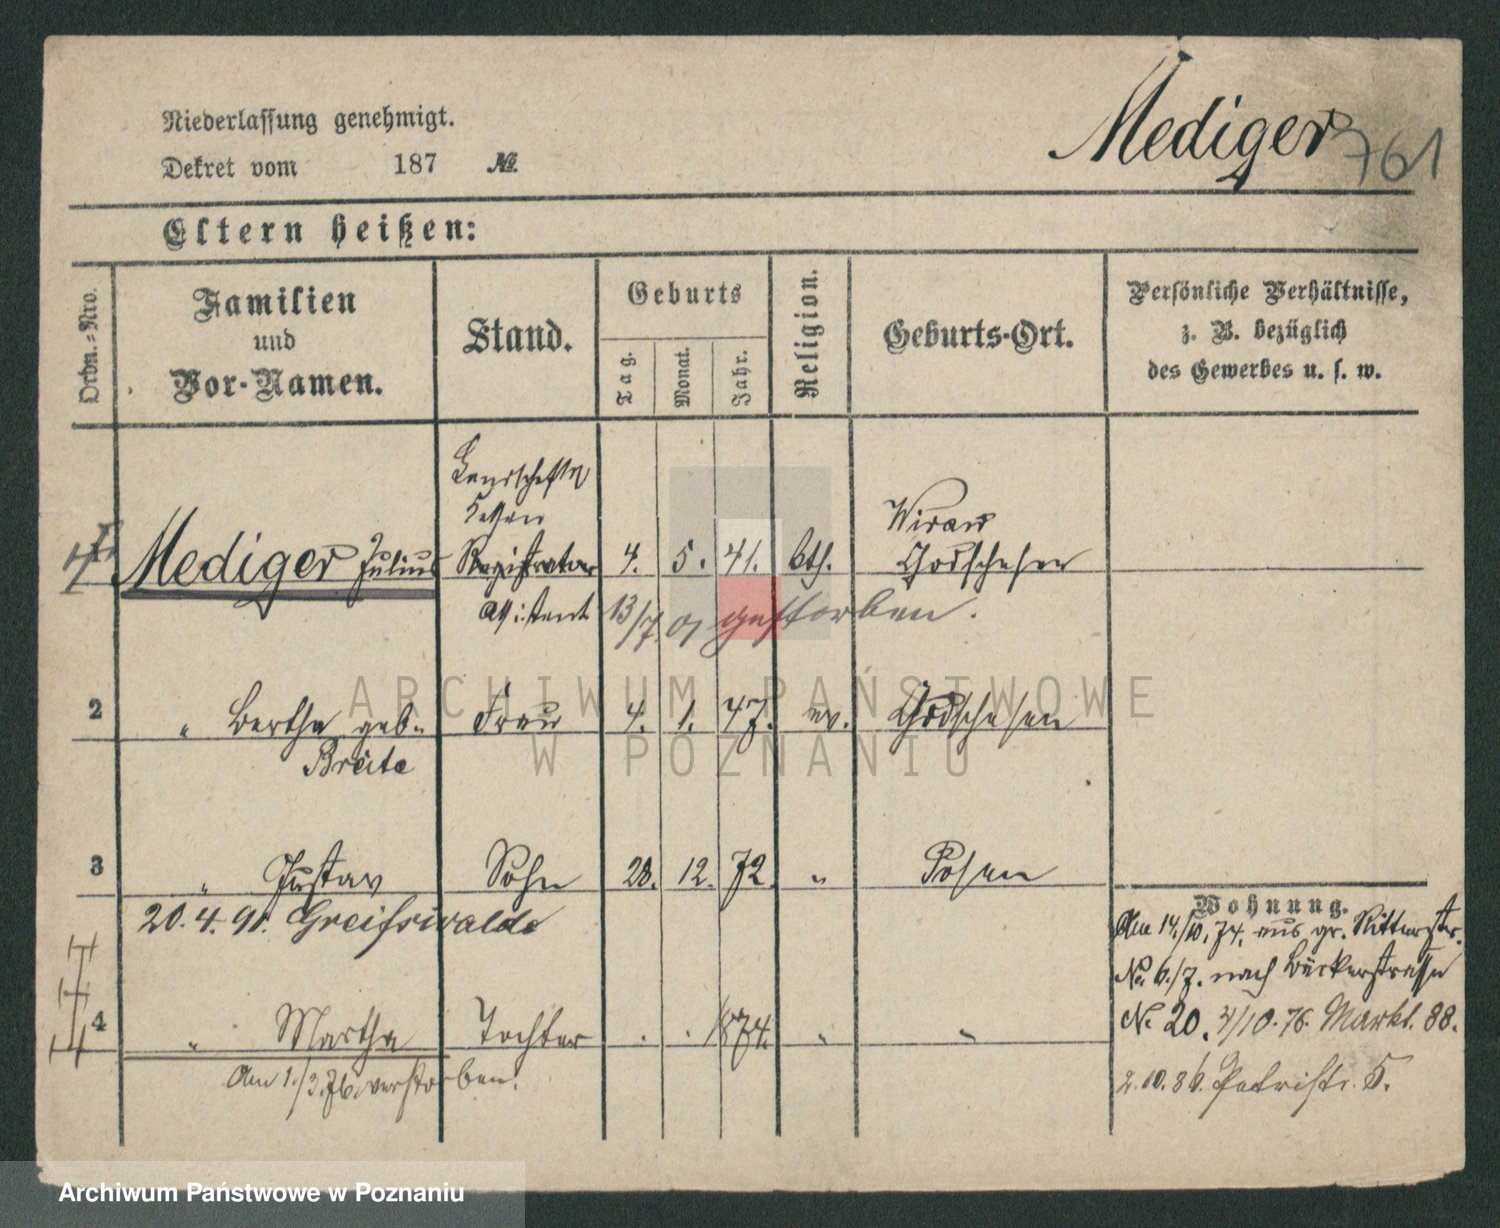 Niederlassung genehmigt.
Dekret vom 187 №
Mediger 761
Eltern heißen:
Ordn.-Nro.
Familien
und
Vor-Namen.
Stand.
Geburts
Tag.
Monat.
Jahr.
Religion.
Geburts-Ort.
Persönliche Verhältnisse,
z. B. bezüglich
des Gewerbes u. s. w.
Landschafts
Kassen
Mediger Julius Registrator 4. 5. 41. kth.
Assistent 13/7 01 gestorben.
2 " Bertha geb. Frau 4. 1. 47. ev.
Breite
3 " Gustav Sohn 28. 12. 72. " Posen
20. 4. 91. Greifswalde
4 " Martha Tochter . . 1874. " "
Am 1./3.76. verstorben.
Wohnung.
Am 14./10. 74. aus gr. Ritterstr.
No. 6./7. nach Bäckerstrasse
No. 20. 2/10. 76. Markt. 88.
2.10.86. Petristr. 5.
ARCHIWUM PAŃSTWOWE
W POZNANIU
Archiwum Państwowe w Poznaniu